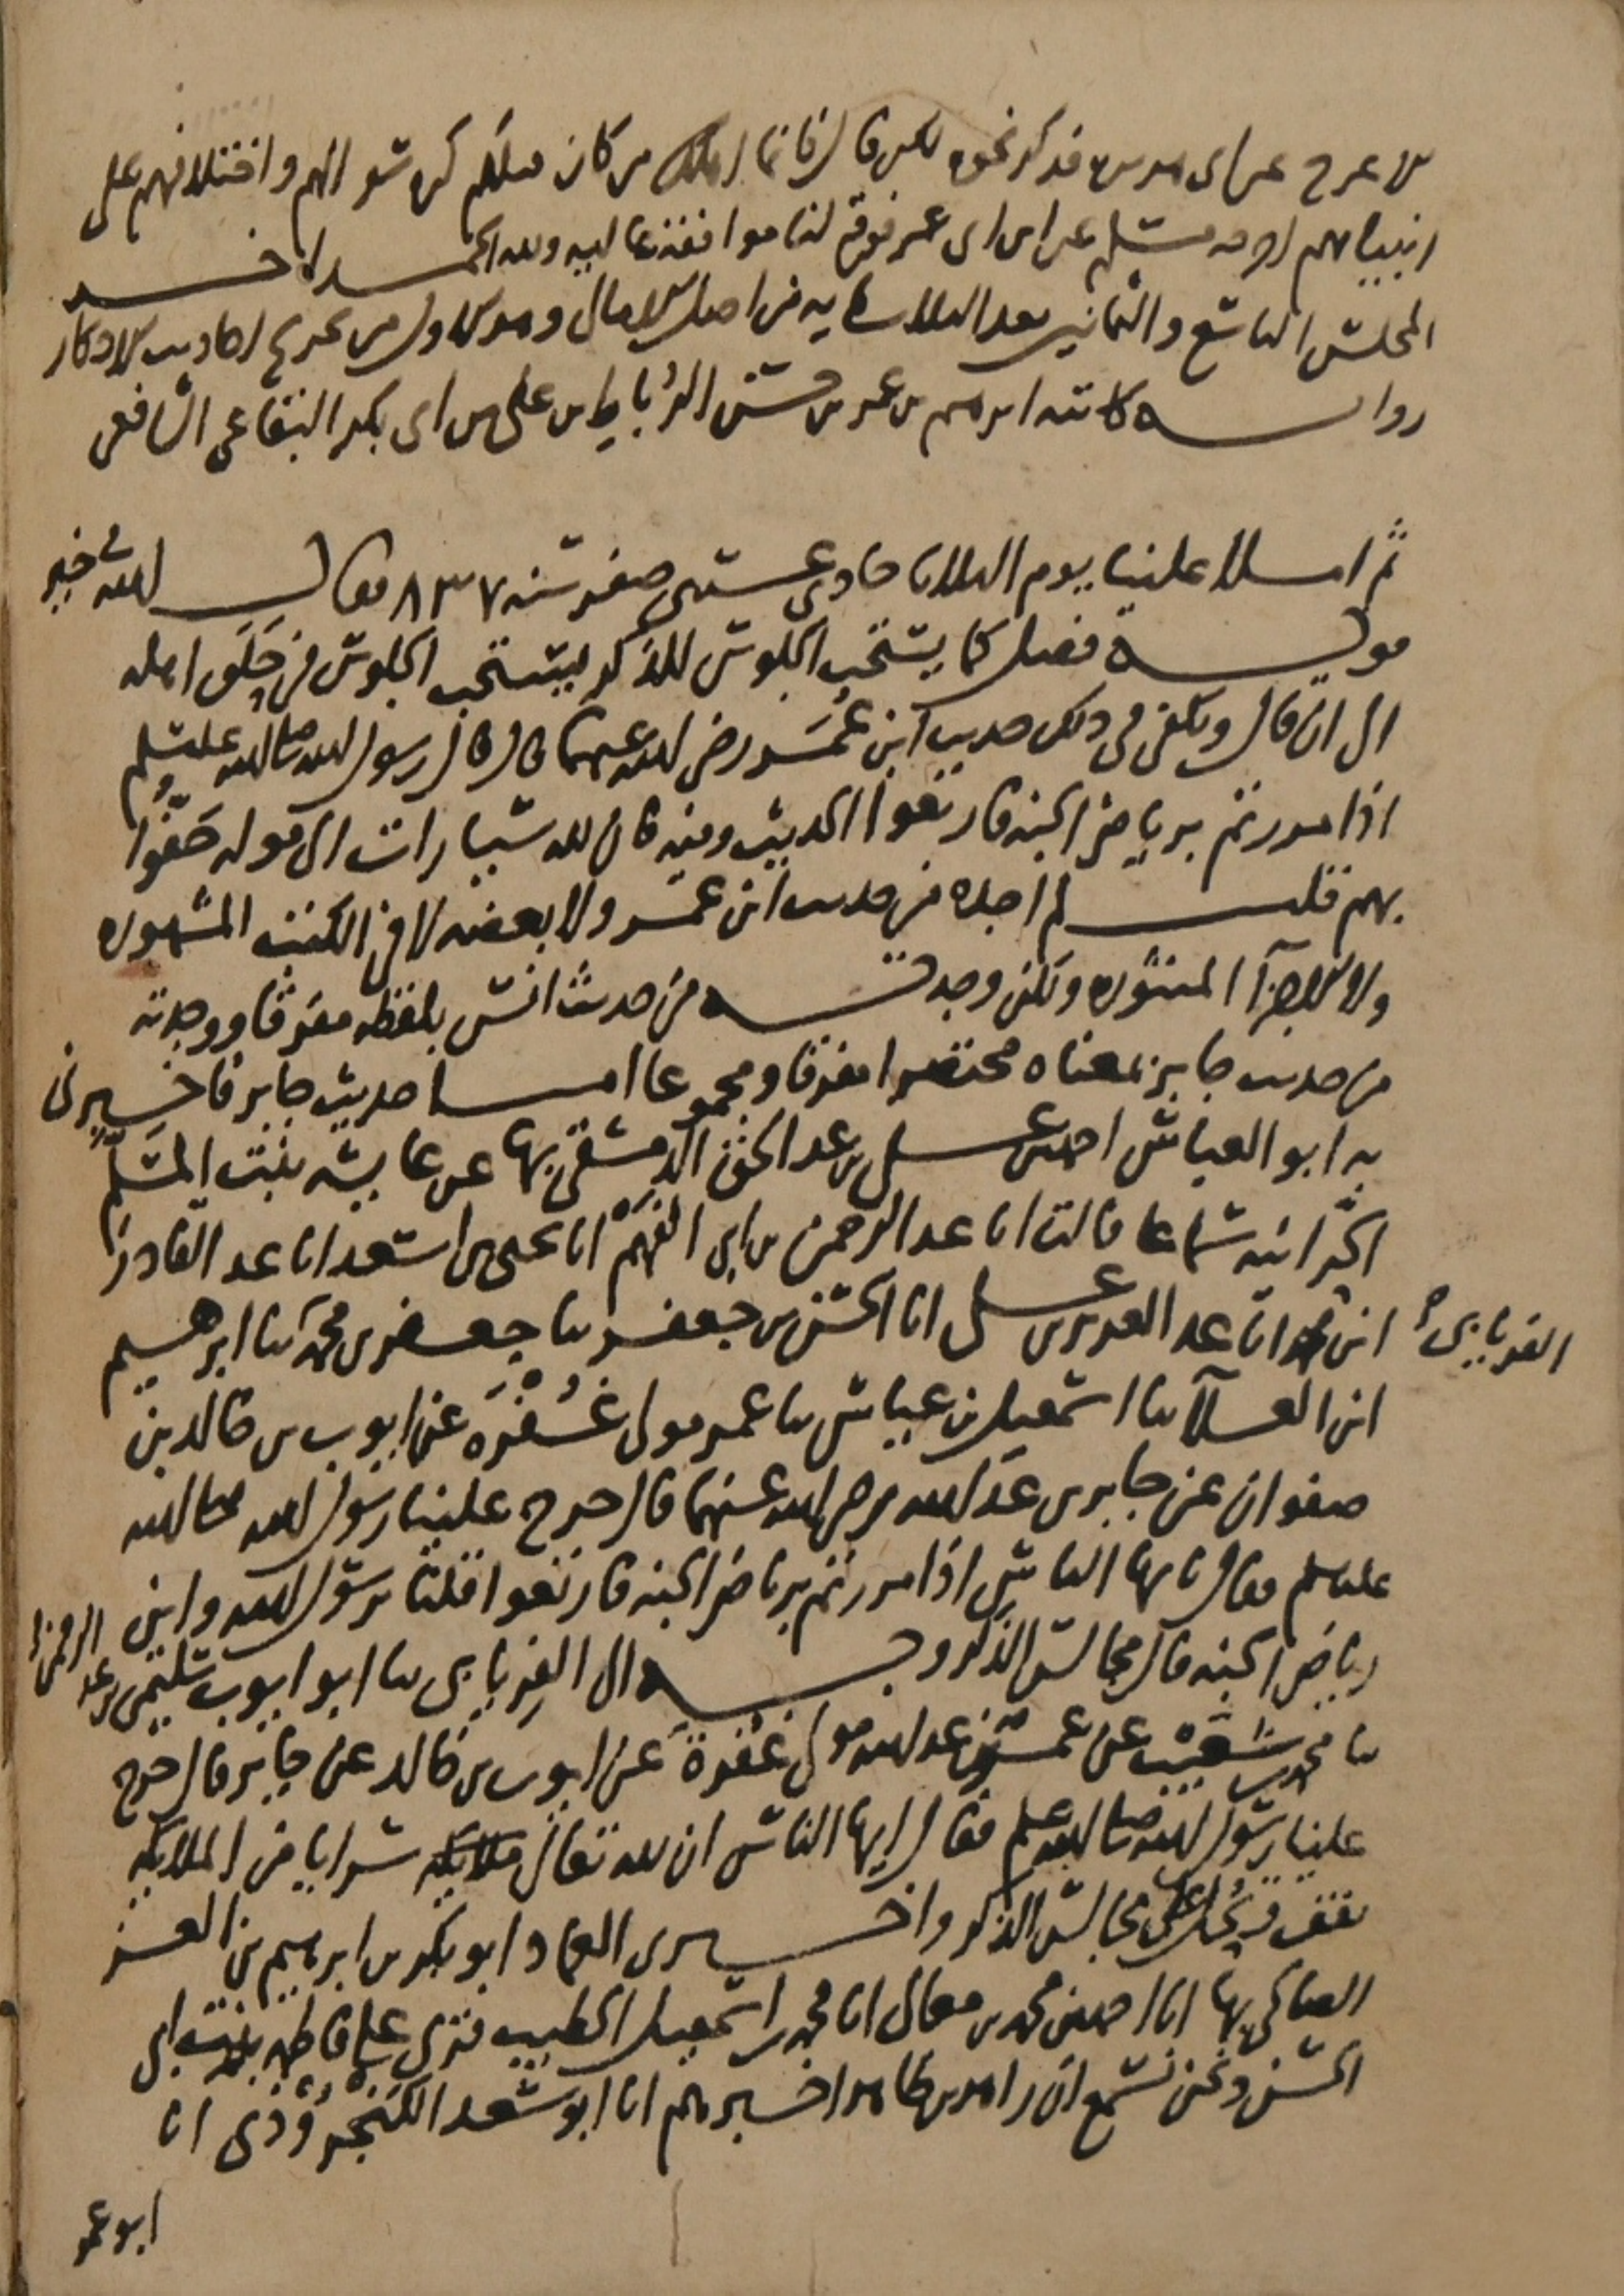 الاعرج عن ابى هريرة فذكر نحوه لكن قال فانما اهلك من كان قبلكم كثره سوالهم واختلافهم على
انبيائهم اخرجه مسلم عن ابن ابى عمر فوقع لنا موافقة عاليه ولله الحمد اخر
المجلس التاسع والثمانين بعد الثلاثمايه من اصل الامالى وهو الاول من تخريج احاديث الاذكار
رواية كاتبه ابرهيم بن عمر بن حسن الرُباط بن على بن ابى بكر البقاعى الشافعى
ثم املا علينا يوم الثلاثا حادى عشرى صفر سنه ٨٣٧ فقال
قوله فصل كما يستحب الجلوس للذكر يستحب الجلوس فى حِلَق اهله
الى ان قال ويكفى فى ذلك حديث ابن عُمَر رضى الله عنهما قال قال رسول الله صلى الله عليه وسلم
اذا مررتم برياض الجنه فارتعوا الحديث وفيه فان لله سيارات الى قوله حَفّوا
بهم قلت لم اجده من حديث ابن عمر ولا بعضه لا فى الكتب المشهوره
ولا الاجزآ المنثوره ولكن وجدته من حديث انس بلفظه مفرقا ووجدته
من حديث جابر بمعناه مختصرا مفرقا ومجموعا اما حديث جابر فاخبرنى
به ابو العباس احمد بن على بن عبد الحق الدمشقى بها عن عايشه بنت المُسَلَّم
الحَرّانيه سماعا قالت انا عبد الرحمن بن ابى الفهم انا يحيى بن اسعد انا عبد القادر
ابن محمد انا عبد العزيز بن على انا الحسن بن جعفر ثنا جعفر بن محمد ثنا ابرهيم
الفريابى صح
ابن العلآ ثنا اسمعيل بن عياش ثنا عمر مولى غُفْرَه عن ايوب بن خالد بن
صفوان عن جابر بن عبد الله رضى الله عنهما قال خرج علينا رسول الله صلى الله
عليه وسلم فقال يا يها الناس اذا مررتم برياض الجنه فارتعوا قلنا يرسول الله واين
رياض الجنه قال مجالس الذكر وبه الى الفِريابى ثنا ابو ايوب سليمن بن عبد الرحمن
ثنا محمد بن شعيب عن عمر بن عبد الله مولى غُفْرة عن ايوب بن خالد عن جابر قال خرج
علينا رسول الله صلى الله عليه وسلم فقال ايها الناس ان لله تعالى سرايا من الملايكه
تقف وتحل على مجالس الذكر واخبرنى العماد ابو بكر بن ابرهيم بن العز
الصالحى بها انا احمد بن محمد بن معالى انا محمد بن اسمعيل الخطيب قرى على فاطمه بنت ابى
الحسن ونحن نسمع ان زاهر بن طاهر اخبرهم انا ابو سعد الكَنْجَرُوْذى انا
ابو عمر